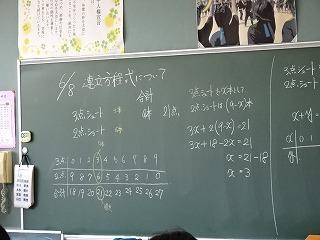 6/8 連立方程式について
合計
3点シュート
2点シュート
21点
3点 0 1 2 3 4 5 6 7 8 9
2点 9 8 7 6 5 4 3 2 1 0
合計 18 19 20 21 22 23 24 25 26 27
3点シュートをx本として
2点シュートは(9-x)本
3x+2(9-x)=21
3x+18-2x=21
x=21-18
x=3
3点シュート
2点シュート
x+y=
x 0 1
y